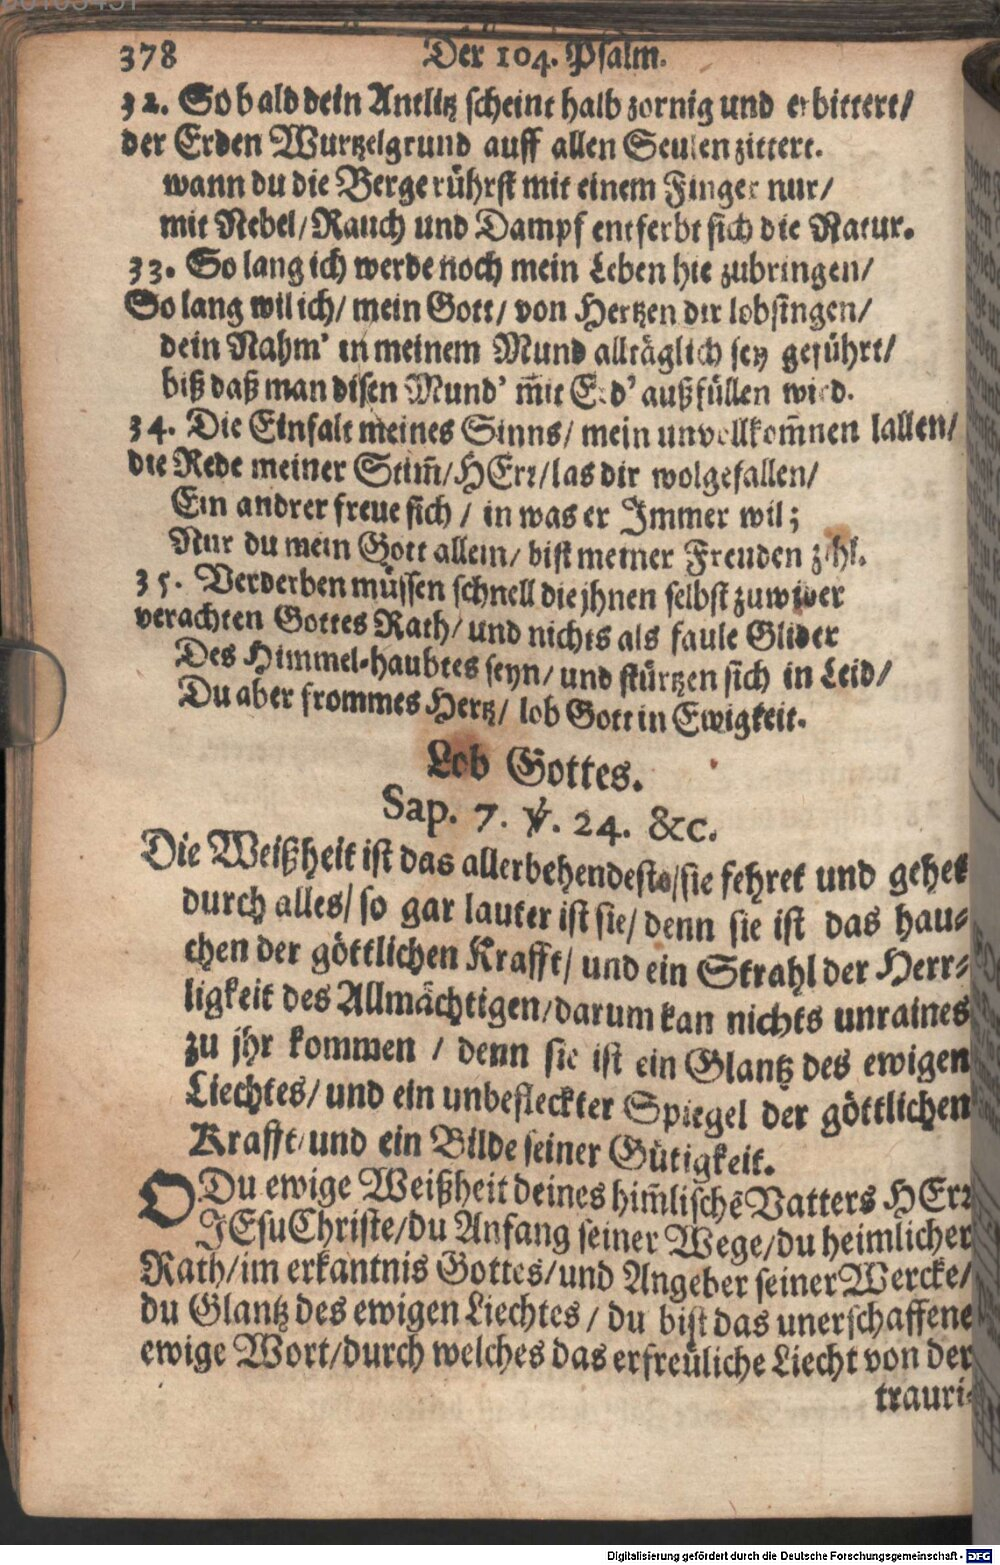 378 Der 104. Psalm.
32. So bald dein Antlitz scheint halb zornig und erbittert/
der Erden Wurtzelgrund auff allen Seulen zittert.
wann du die Berge rührst mit einem Finger nur/
mit Nebel/Rauch und Dampf entferbt sich die Natur.
33. So lang ich werde noch mein Leben hie zubringen/
So lang wil ich/ mein Gott/ von Hertzen dir lobsingen/
dein Nahm' in meinem Mund alltäglich sey geführt/
biß daß man disen Mund' mit Erd' außfüllen wird.
34. Die Einfalt meines Sinns/ mein unvollkom̃nen lallen/
die Rede meiner Stim̃/HErr/las dir wolgefallen/
Ein andrer freue sich / in was er Immer wil;
Nur du mein Gott allein/ bist meiner Freuden zihl.
35. Verderben müssen schnell die jhnen selbst zuwider
verachten Gottes Rath/ und nichts als faule Glider
Des Himmel-haubtes seyn/ und stürtzen sich in Leid/
Du aber frommes Hertz/ lob Gott in Ewigkeit.
Lob Gottes.
Sap. 7. ℣. 24. &c.
Die Weißheit ist das allerbehendeste/sie fehret und gehet
durch alles/ so gar lauter ist sie/ denn sie ist das hau-
chen der göttlichen Krafft/ und ein Strahl der Herr-
ligkeit des Allmächtigen/darum kan nichts unraines
zu jhr kommen / denn sie ist ein Glantz des ewigen
Liechtes/ und ein unbefleckter Spiegel der göttlichen
Krafft/ und ein Bilde seiner Gütigkeit.
O Du ewige Weißheit deines him̃lischē Vatters HErr
JEsu Christe/du Anfang seiner Wege/du heimlicher
Rath/im erkantnis Gottes/und Angeber seiner Wercke/
du Glantz des ewigen Liechtes / du bist das unerschaffene
ewige Wort/durch welches das erfreuliche Liecht von der
trauri-
Digitalisierung gefördert durch die Deutsche Forschungsgemeinschaft - DFG